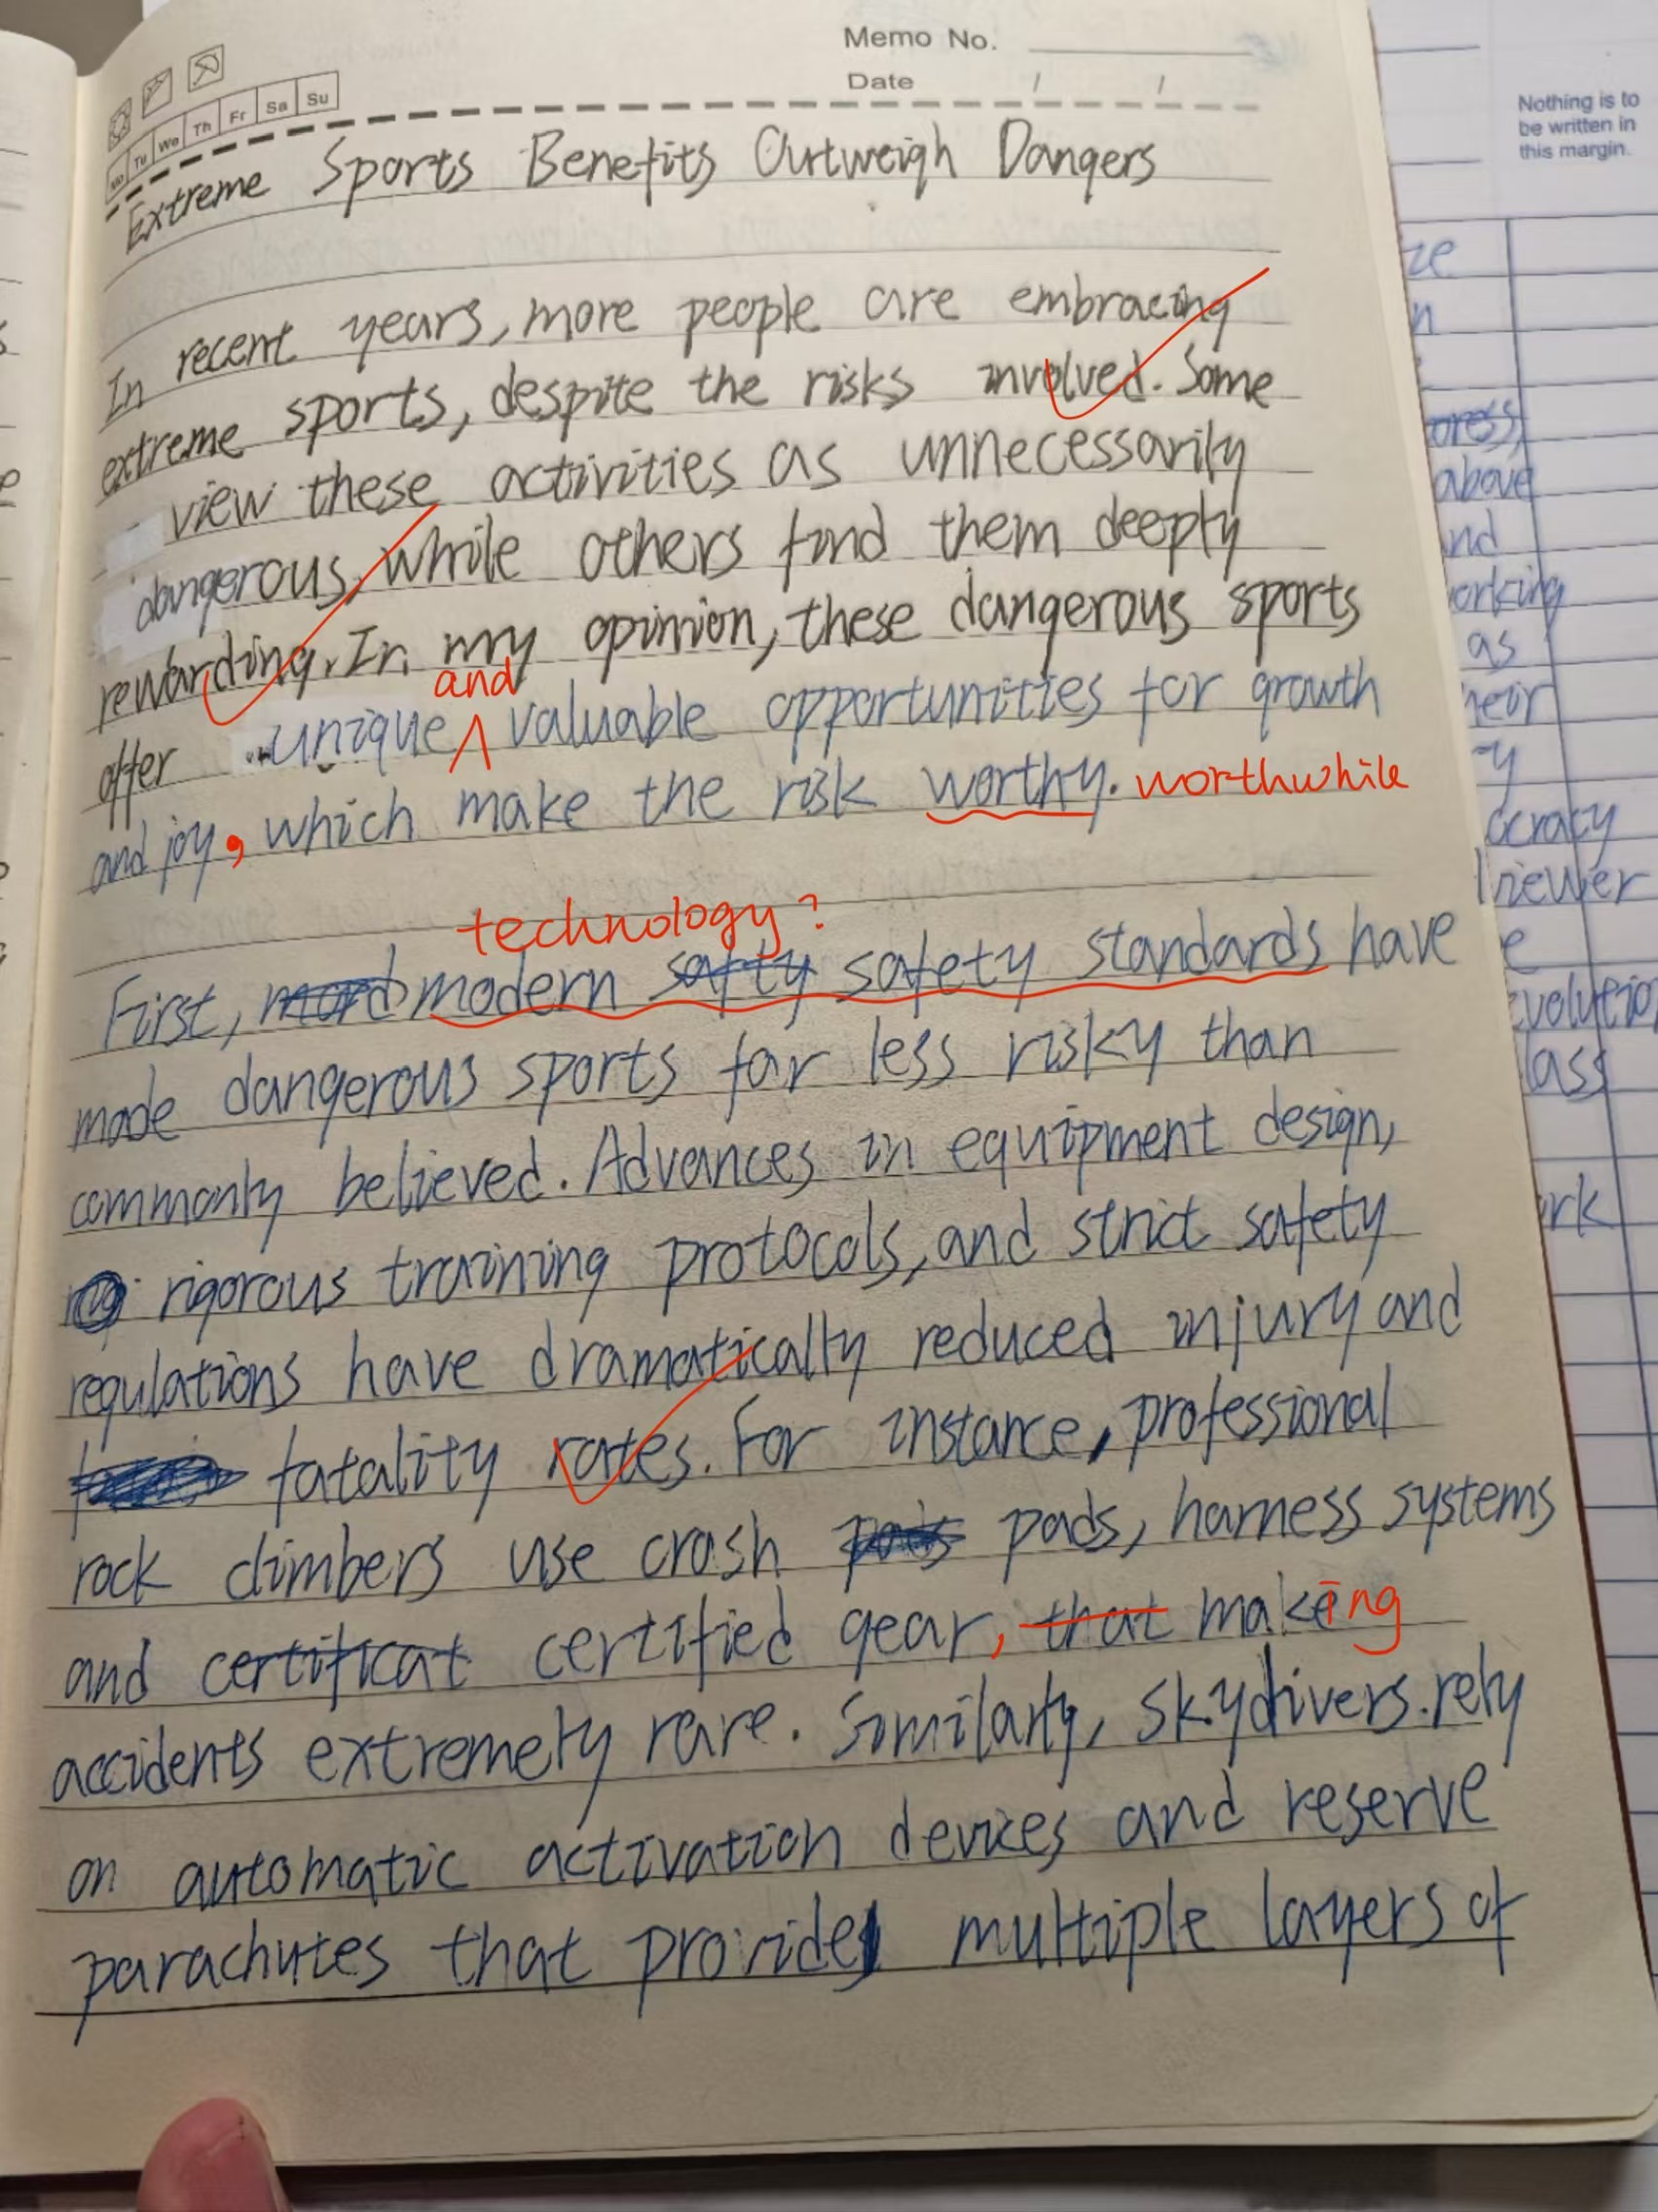 Memo No.
Date / /
Mo Tu We Th Fr Sa Su
Nothing is to
be written in
this margin.
Extreme Sports Benefits Outweigh Dangers
In recent years, more people are embracing
extreme sports, despite the risks involved. Some
view these activities as unnecessarily
dangerous, while others find them deeply
rewarding. In my opinion, these dangerous sports
and
offer unique valuable opportunities for growth
and joy, which make the risk worthy. worthwhile
technology?
First, modern safty safety standards have
made dangerous sports far less risky than
commonly believed. Advances in equipment design,
rigorous training protocols, and strict safety
regulations have dramatically reduced injury and
fatality rates. For instance, professional
rock climbers use crash pads, harness systems
and certificat certified gear, that making
accidents extremely rare. Similarly, skydivers.rely
on automatic activation devices and reserve
parachutes that provide multiple layers of
above
as